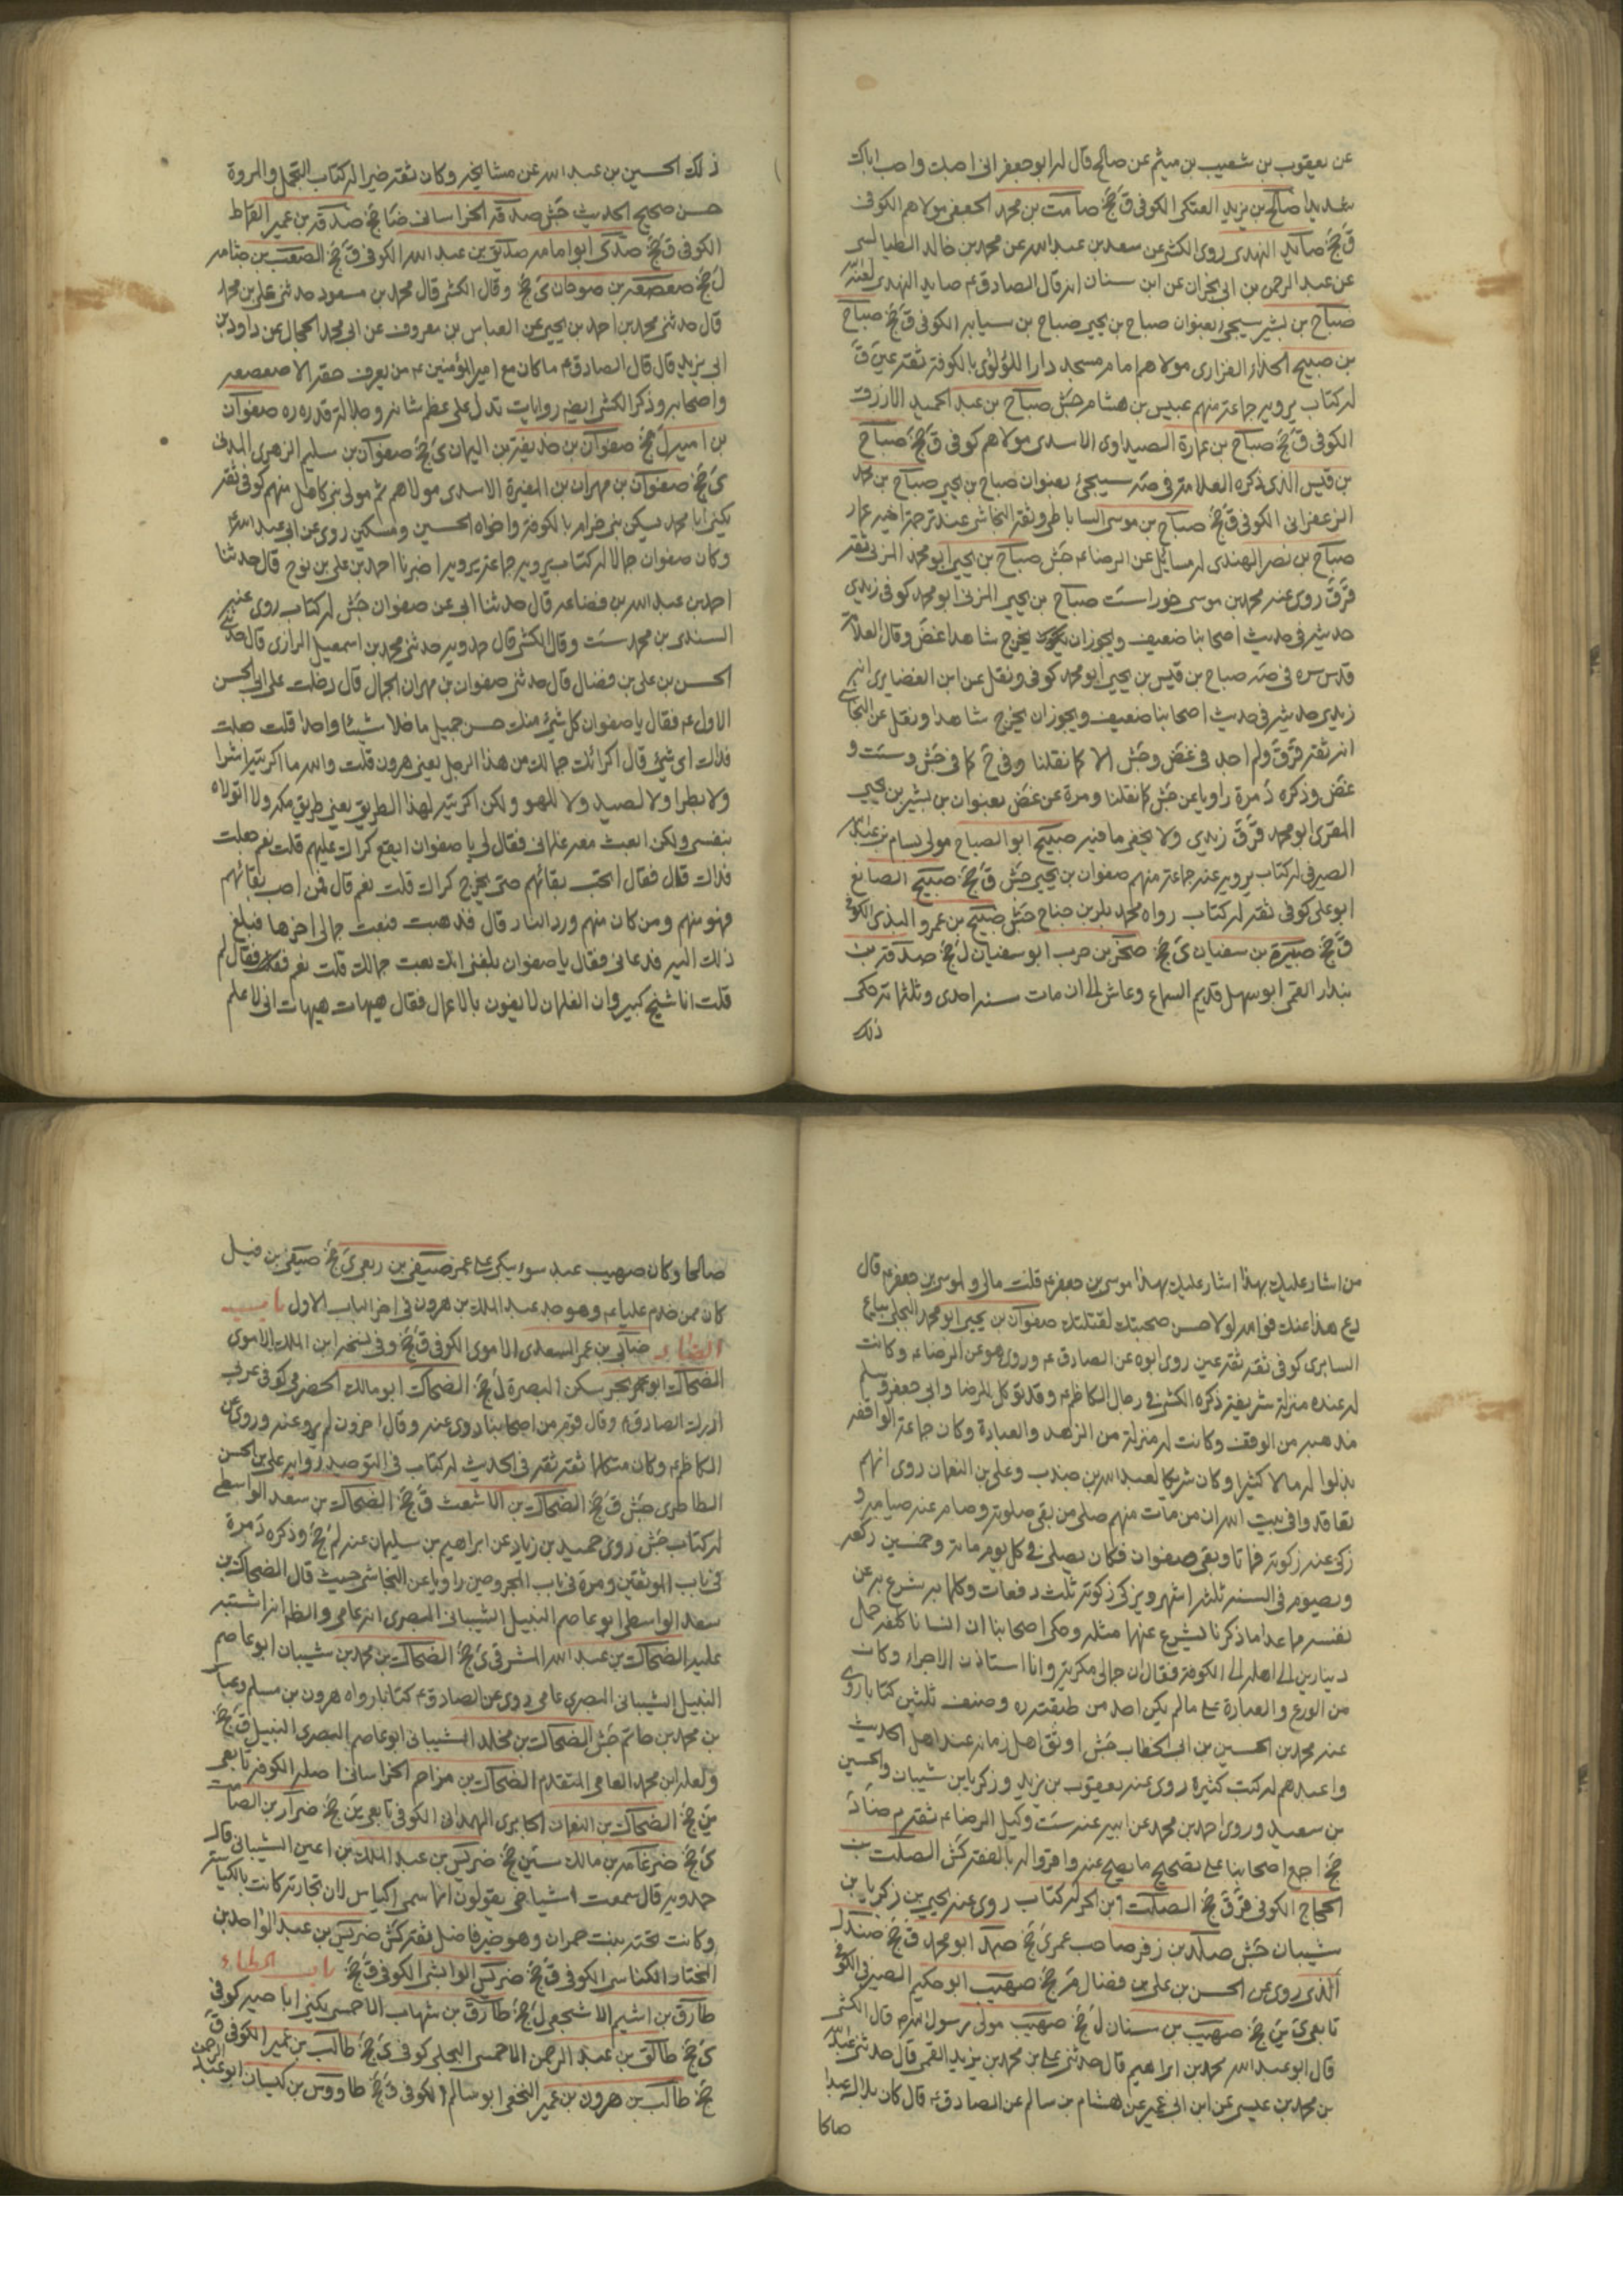 عن يعقوب بن شعيب بن ميثم عن صالح قال له ابو جعفر انى احبك واحب اباك
شديدا صالح بن يزيد العتكى الكوفى ق جخ صامت بن محمد الجعفى مولاهم الكوفى
ق جخ صايد النهدى روى الكشى عن سعد بن عبد الله عن محمد بن خالد الطيالسى
عن عبد الرحمن بن ابى نجران عن ابن سنان انه قال الصادق ع صايد النهدى لعنه
صباح بن بشير سيجى بعنوان صباح بن يحيى صباح بن سيابه الكوفى ق جخ صباح
بن صبيح الحذاء الفزارى مولاهم امام مسجد دار اللؤلؤى بالكوفة ثقة عين ق
له كتاب يرويه جماعة منهم عبيس بن هشام جش صباح بن عبد الحميد الازرق
الكوفى ق جخ صباح بن عمارة الصيداوى الاسدى مولاهم كوفى ق جخ صباح
بن قيس الذى ذكره العلامة فى صه سيجئ بعنوان صباح بن يحيى صباح بن محمد
الزعفرانى الكوفى ق جخ صباح بن موسى الساباطى وثقه النجاشى عند ترجمة اخيه عمار
صباح بن نصر الهندى له مسائل عن الرضا ع جش صباح بن يحيى ابو محمد المزنى ثقة
قر ق روى عنه محمد بن موسى خوراست صباح بن يحيى المزنى ابو محمد كوفى زيدى
حديثه فى حديث اصحابنا ضعيف ويجوز ان يخرج شاهدا غض وقال العلامة
قدس سره فى صه صباح بن قيس بن يحيى ابو محمد كوفى ونقل عن ابن الغضايرى انه
زيدى حديثه فى حديث اصحابنا ضعيف ويجوز ان يخرج شاهدا ونقل عن النجاشى
انه ثقة قر ق ولم اجد فى غض وجش الا كما نقلنا وفى كما فى جش وست و
غض وذكره د مرة راويا عن جش كما نقلنا ومرة عن غض بعنوان بن بشير بن يحيى
المقرى ابو محمد قر ق زيدى ولا يخفى ما فيه صبيح ابو الصباح مولى بسام بن عبد الله
الصيرفى له كتاب يرويه عنه جماعة منهم صفوان بن يحيى جش ق جخ صبيح الصايغ
ابو على كوفى ثقة له كتاب رواه محمد بن بكر بن جناح جش صبيح بن عمرو الكوفى
ق جخ صبيرة بن سفيان ى جخ صخر بن حرب ابو سفيان ل جخ صدقة بن
بندار القمى ابو سهل قديم السماع وعاش الى ان مات سنه احدى وثلثمائة حكى
ذلك
ذلك الحسين بن عبد الله عن مشايخه وكان ثقة خيرا له كتاب التجمل والمروة
حسن صحيح الحديث جش صدقة الخراسانى ضا جخ صدقة بن عمير القماط
الكوفى ق جخ صدى ابو امامه صديق بن عبد الله الكوفى ق جخ الصعب بن جثامه
ل جخ صعصعة بن صوحان ى جخ وقال الكشى قال محمد بن مسعود حدثنى على بن محمد
قال حدثنى محمد بن احمد بن يحيى عن العباس بن معروف عن ابى محمد الحجال عن داود بن
ابى يزيد قال قال الصادق ع ما كان مع امير المؤمنين ع من يعرف حقه الا صعصعه
واصحابه وذكر الكشى ايضا روايات تدل على عظم شانه وجلالة قدره ره صفوان
بن امية ل جخ صفوان بن حذيفة بن اليمان ى جخ صفوان بن سليم الزهرى المدنى
ى جخ صفوان بن مهران بن المغيرة الاسدى مولاهم ثم مولى بنى كاهل منهم كوفى ثقة
يكنى ابا محمد يسكن بنى حرام بالكوفة واخواه الحسين ومسكين روى عن ابى عبد الله ع
وكان صفوان جمالا له كتاب يرويه جماعة يرويه اخبرنا احمد بن على بن نوح قال حدثنا
احمد بن عبد الله بن قضاعه قال حدثنا ابى عن صفوان جش له كتاب روى عنه
السندى بن محمد ست وقال الكشى قال حمدويه حدثنى محمد بن اسمعيل الرازى قال حدثنى
الحسن بن على بن فضال قال حدثنى صفوان بن مهران الجمال قال دخلت على ابى الحسن
الاول ع فقال يا صفوان كل شئ منك حسن جميل ما خلا شيئا واحدا قلت جعلت
فداك اى شئ قال اكرائك جمالك من هذا الرجل يعنى هرون قلت والله ما اكريته اشرا
ولا بطرا ولا لصيد ولا للهو ولكن اكريته لهذا الطريق يعنى طريق مكة ولا اتولاه
بنفسى ولكن ابعث معه غلمانى فقال لى يا صفوان ايقع كراك عليهم قلت نعم جعلت
فداك قال فقال اتحب بقائهم حتى يخرج كراك قلت نعم قال فمن احب بقائهم
فهو منهم ومن كان منهم ورد النار قال فذهبت فبعت جمالى اخرها فبلغ
ذلك اليه فدعانى فقال يا صفوان بلغنى انك بعت جمالك قلت نعم فقال لم
قلت انا شيخ كبير وان الغلمان لا يفون بالاعمال فقال هيهات هيهات انى لاعلم
من اشار عليك بهذا اشار عليك بهذا موسى بن جعفر ع قلت مالى ولموسى بن جعفر ع قال
دع هذا عنك فوالله لولا حسن صحبتك لقتلتك صفوان بن يحيى ابو محمد البجلى بياع
السابرى كوفى ثقه ثقة عين روى ابوه عن الصادق ع وروى هو عن الرضا ع وكانت
له عنده منزلة شريفة ذكره الكشى فى رجال الكاظم ع وقد توكل للرضا وابى جعفر وسلم
مذهبه من الوقف وكانت له منزلة من الزهد والعبادة وكان جماعة الواقفه
بذلوا له مالا كثيرا وكان شريكا لعبد الله بن جندب وعلى بن النعمان روى انهم
تعاقدوا فى بيت الله ان من مات منهم صلى من بقى صلوته وصام عنه صيامه و
زكى عنه زكوته فماتا وبقى صفوان فكان يصلى فى كل يوم مائة وخمسين ركعه
ويصوم فى السنه ثلثه اشهر ويزكى زكوته ثلث دفعات وكلما يتبرع به عن
نفسه مما عدا ما ذكرنا تبرع عنهما مثله وحكى اصحابنا ان انسانا كلفه حمل
دينارين الى اهله الى الكوفة فقال ان جمالى مكرية وانا استاذن الاجراء وكان
من الورع والعبادة على ما لم يكن احد من طبقته ره وصنف ثلثين كتابا روى
عنه محمد بن الحسين بن ابى الخطاب جش اوثق اهل زمانه عند اهل الحديث
واعبدهم له كتب كثيرة روى عنه يعقوب بن يزيد وزكريا بن شيبان والحسين
بن سعيد وروى احمد بن محمد عن ابيه عنه ست وكيل الرضا ع ثقة م ضا د
جخ اجمع اصحابنا على تصحيح ما يصح عنه واقروا له بالفقه كش الصلت بن
الحجاج الكوفى قر ق جخ الصلت بن الحر له كتاب روى عنه يحيى بن زكريا بن
شيبان جش صلة بن زفر صاحب عمر ى جخ صهد ابو محمد ق جخ صندل
الذى روى عن الحسن بن على بن فضال م جخ صهيب ابو حكيم الصيرفى الكوفى
تابعى ى ين جخ صهيب بن سنان ل جخ صهيب مولى رسول الله ص قال الكشى
قال ابو عبد الله محمد بن ابراهيم قال حدثنى على بن محمد بن يزيد القمى قال حدثنى عبد الله
بن محمد بن عيسى عن ابن ابى عمير عن هشام بن سالم عن الصادق ع قال كان بلال عبدا
صالحا
صالحا وكان صهيب عبد سوء يبكى على عمر صيفى بن ربعى ى جخ صيفى بن فيل
كان ممن خدم عليا ع وهو جد عبد الملك بن هرون فى اخر الباب الاول باب
الضاد ضابى بن عمر السعدى الاموى الكوفى ق جخ وفى نسخه ابن الملك الاموى
الضحاك ابو بحر سكن البصرة ل جخ الضحاك ابو مالك الحضرمى كوفى عربى
ادرك الصادق ع وقال قوم من اصحابنا روى عنه وقال اخرون لم يرو عنه وروى عن
الكاظم ع وكان متكلما ثقة ثقة فى الحديث له كتاب فى التوحيد رواية على بن الحسن
الطاطرى جش ق جخ الضحاك بن الاشعث ق جخ الضحاك بن سعد الواسطى
له كتاب جش روى حميد بن زياد عن ابراهيم بن سليمان عنه لم جخ وذكره د مرة
فى باب الموثقين ومرة فى باب المجروحين راويا عن النجاشى حيث قال الضحاك بن
سعد الواسطى ابو عاصم النبيل الشيبانى البصرى انه عامى والظاهر انه اشتبه
عليه الضحاك بن عبد الله المشرقى ى جخ الضحاك بن محمد بن شيبان ابو عاصم
النبيل الشيبانى البصرى عامى روى عن الصادق ع كتابا رواه هرون بن مسلم وعباس
بن محمد بن حاتم جش الضحاك بن مخلد الشيبانى ابو عاصم البصرى النبيل ق جخ
ولعله ابن محمد العامى المتقدم الضحاك بن مزاحم الخراسانى اصله الكوفه تابعى
ين جخ الضحاك بن النعمان الجابرى الهمدانى الكوفى تابعى ين جخ ضرار بن الصامت
ى جخ ضرغامه بن مالك سين جخ ضريس بن عبد الملك بن اعين الشيبانى قال
حمدويه قال سمعت اشياخى يقولون انما سمى الكناسى لان تجارته كانت بالكناسة
وكانت تحته بنت حمران وهو خير فاضل ثقة كش ضريس بن عبد الواحد بن
المختار الكناسى الكوفى ق جخ ضريس الوابشى الكوفى ق جخ باب الطاء
طارق بن اشيم الاشجعى ل جخ طارق بن شهاب الاحمسى يكنى ابا حيه كوفى
ى جخ طارق بن عبد الرحمن الاحمسى البجلى كوفى ى جخ طالب بن عمير الكوفى ق
جخ طالب بن هرون بن عمير النخعى ابو سالم الكوفى ق جخ طاووس بن كيسان ابو عبد الرحمن